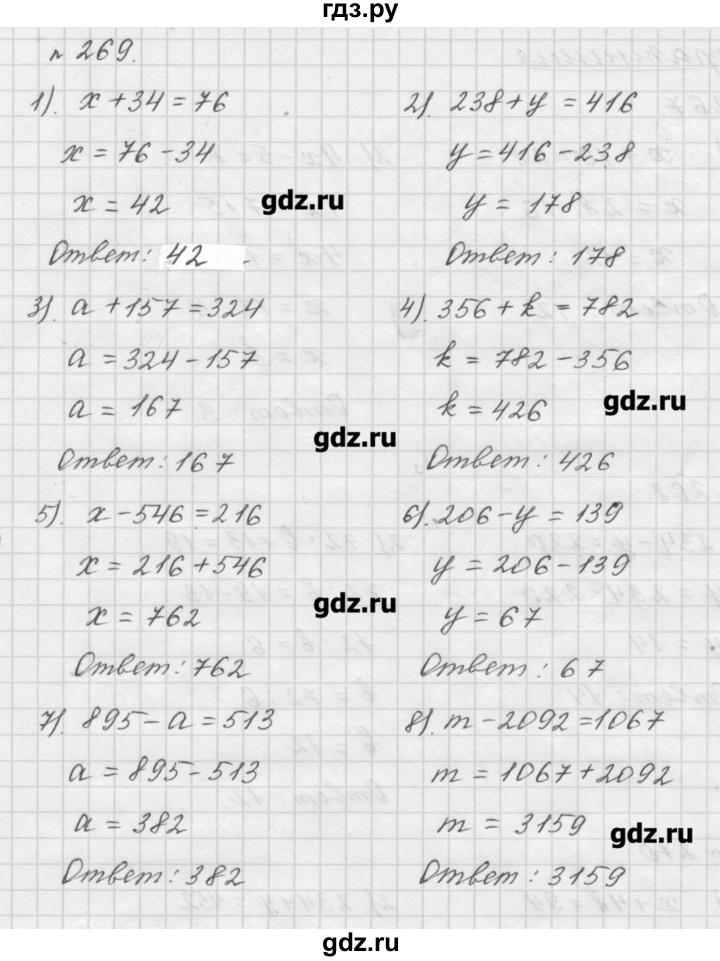 гдз.ру
№ 269.
1). x + 34 = 76
x = 76 - 34
x = 42
Ответ: 42
2). 238 + y = 416
y = 416 - 238
y = 178
Ответ: 178
gdz.ru
3). a + 157 = 324
a = 324 - 157
a = 167
Ответ: 167
4). 356 + k = 782
k = 782 - 356
k = 426
Ответ: 426
gdz.ru
gdz.ru
5). x - 546 = 216
x = 216 + 546
x = 762
Ответ: 762
6). 206 - y = 139
y = 206 - 139
y = 67
Ответ: 67
gdz.ru
7). 895 - a = 513
a = 895 - 513
a = 382
Ответ: 382
8). m - 2092 = 1067
m = 1067 + 2092
m = 3159
Ответ: 3159
gdz.ru
gdz.ru